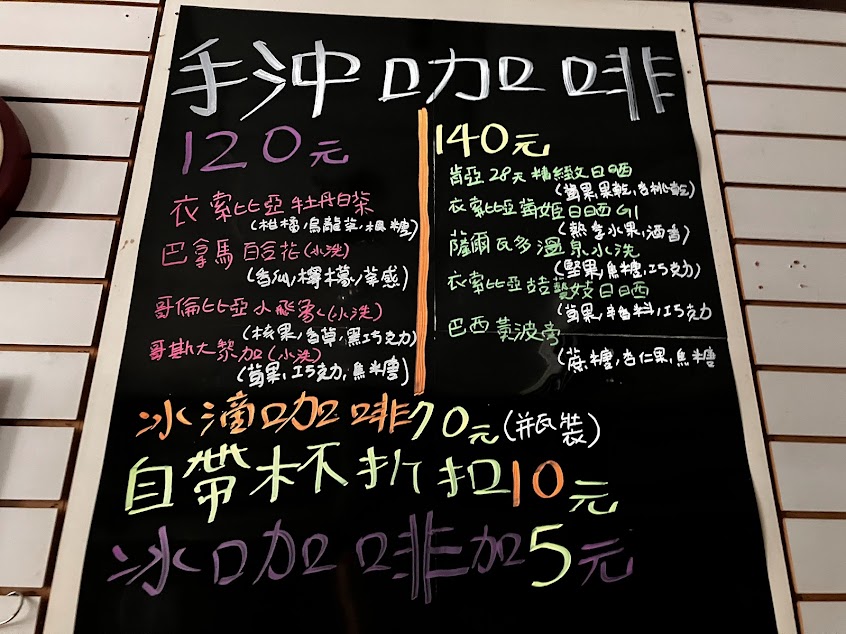 手沖咖啡
120元
衣索比亞牡丹白茶
(柑橘,烏龍茶,楓糖)
巴拿馬百合花(水洗)
(香仙,檸檬,茶感)
哥倫比亞小飛象(水洗)
(核果,香草,黑巧克力)
哥斯大黎加(水洗)
(莓果,巧克力,焦糖)
140元
肯亞28天精緻日晒
(莓果,果乾,杏桃乾)
衣索比亞莓姬日晒G1
(熱季水果,酒香)
薩爾瓦多溫泉水洗
(堅果,焦糖,巧克力)
衣索比亞鼓藝妓日晒
(莓果,辛香料,巧克力
巴西黃波旁
(蔗糖,杏仁果,焦糖
冰滴咖啡70元(瓶裝)
自帶杯折扣10元
冰咖啡加5元